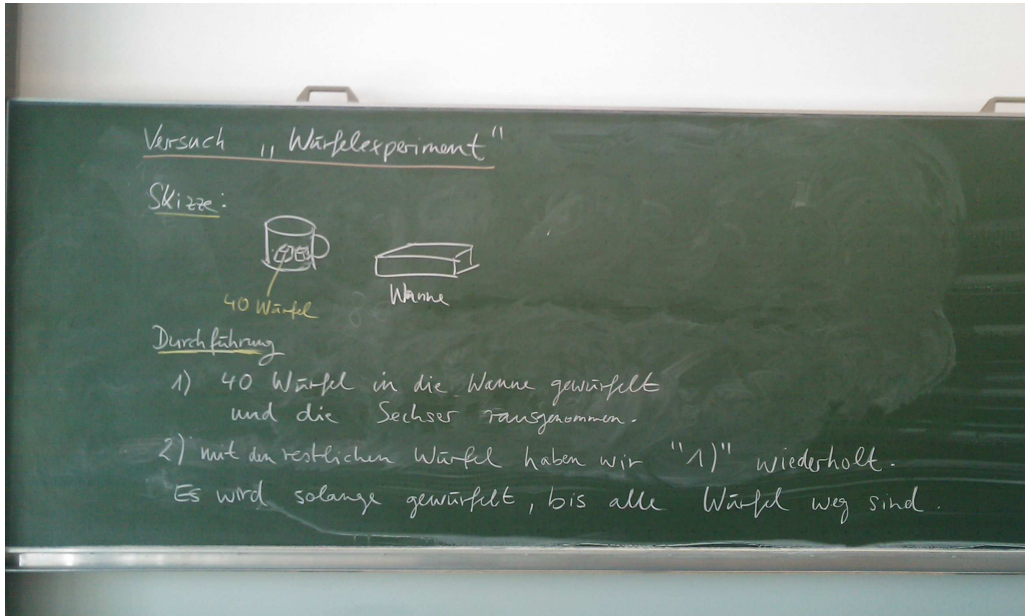 Versuch „Würfelexperiment"
Skizze:
40 Würfel
Wanne
Durchführung
1) 40 Würfel in die Wanne gewürfelt
und die Sechser rausgenommen.
2) mit den restlichen Würfel haben wir "1)" wiederholt.
Es wird solange gewürfelt, bis alle Würfel weg sind.